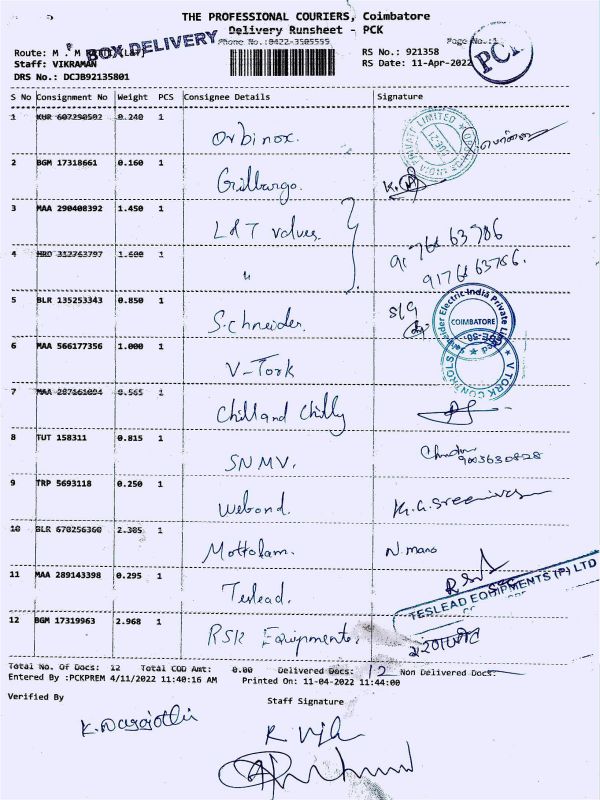 THE PROFESSIONAL COURIERS, Coimbatore
Delivery Runsheet - PCK
Phone No.:0422-3505555
Page No.:1
BOX DELIVERY
PCK
Staff: VIKRAMAN
RS No.: 921358
RS Date: 11-Apr-2022
DRS No.: DCJB92135801
S No Consignment No Weight PCS Consignee Details Signature
1 KUR 607290502 0.240 1 Orbinox.
2 BGM 17318661 0.160 1 Grillbargo.
3 MAA 290408392 1.450 1 L&T valves.
4 HRD 312763797 1.600 1 "
91766 63786
9176663786.
5 BLR 135253343 0.850 1 Schneider.
Schneider Electric India Private
COIMBATORE
6 MAA 566177356 1.000 1 V-Tork
V TORK CONTROLS
7 MAA 287161094 0.565 1 Chill and Chilly
8 TUT 158311 0.815 1 SNMV.
9 TRP 5693118 0.250 1 Webond.
10 BLR 670256360 2.385 1 N. mano
11 MAA 289143398 0.295 1 Teslead.
TESLEAD EQUIPMENTS (P) LTD
12 BGM 17319963 2.968 1 RSK Equipments.
Total No. Of Docs: 12 Total COD Amt: 0.00 Delivered Docs: 12 Non Delivered Docs:
Entered By :PCKPREM 4/11/2022 11:40:16 AM Printed On: 11-04-2022 11:44:00
Verified By Staff Signature